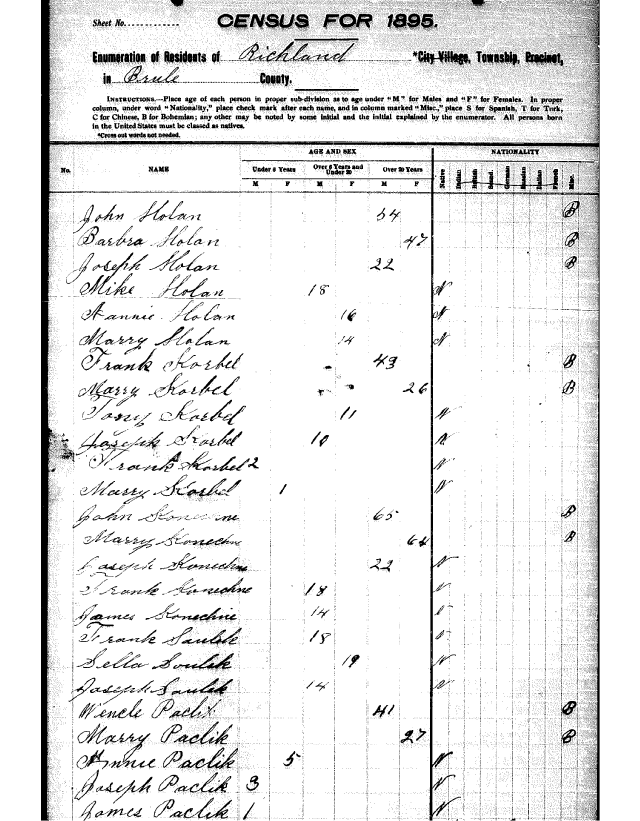 Sheet No.
CENSUS FOR 1895.
Enumeration of Residents of Richland *City Village, Township, Precinct,
in Brule County.
INSTRUCTIONS.—Place age of each person in proper sub-division as to age under "M" for Males and "F" for Females. In proper
column, under word "Nationality," place check mark after each name, and in column marked "Misc.," place S for Spanish, T for Turk,
C for Chinese, B for Bohemian; any other may be noted by some initial and the initial explained by the enumerator. All persons born
in the United States must be classed as natives.
*Cross out words not needed.
AGE AND SEX NATIONALITY
No. NAME Under 6 Years Over 6 Years and Under 20 Over 20 Years Native Irish British Scand. German Russian Italian French Misc.
M F M F M F
John Holan 54 B
Barbra Holan 47 B
Joseph Holan 22 B
Mike Holan 18 N
Nannie Holan 16 N
Marry Holan 14 N
Frank Korbel 43 B
Marry Korbel 26 B
Tony Korbel 11 N
Joseph Korbel 10 N
Frank Korbel 2 N
Marry Korbel 1 N
John 65 B
Marry Konechne 64 B
Joseph Konechne 22 N
Frank Konechne 18 N
James Konechne 14 N
Frank Soulek 18 N
Sella Soulek 19 N
Joseph Soulek 14 N
Wencle Paclik 41 B
Marry Paclik 27 B
Annie Paclik 5 N
Joseph Paclik 3 N
James Paclik 1 N